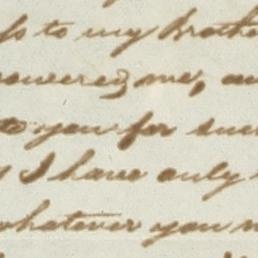 to my Brothe
powered me, an
to you for suc
I have only
whatever you